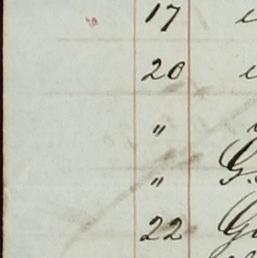 17
20
"
" G.
22 G